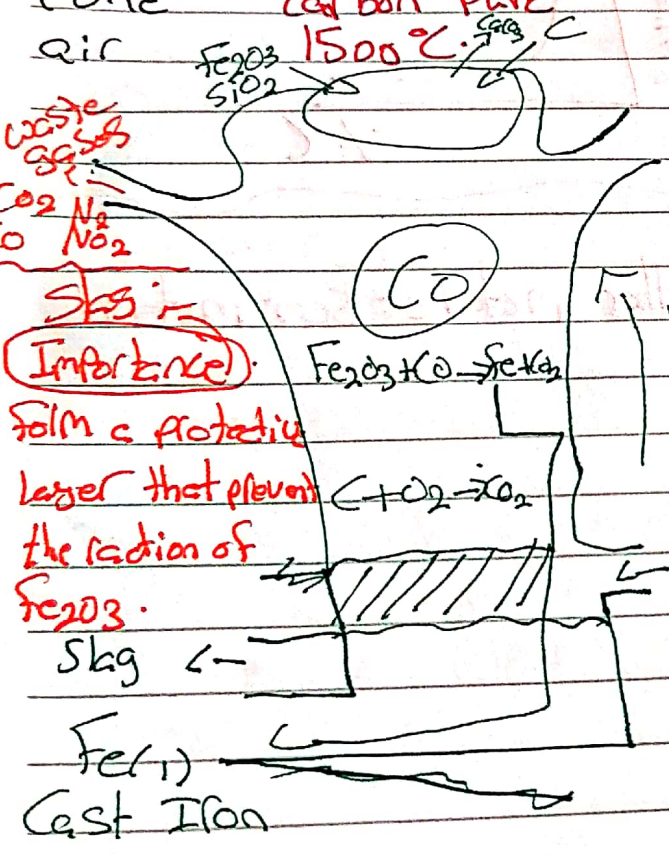 air
1500°C.
CaCO3
C
Fe2O3
SiO2
waste
gases
CO2 N2
NO2
Slag :-
Importance
form a protective
Layer that prevent
the raction of
Fe2O3.
CO
Fe2O3+CO→Fe+CO2
C+O2→CO2
Slag
Fe(l)
Cast Iron